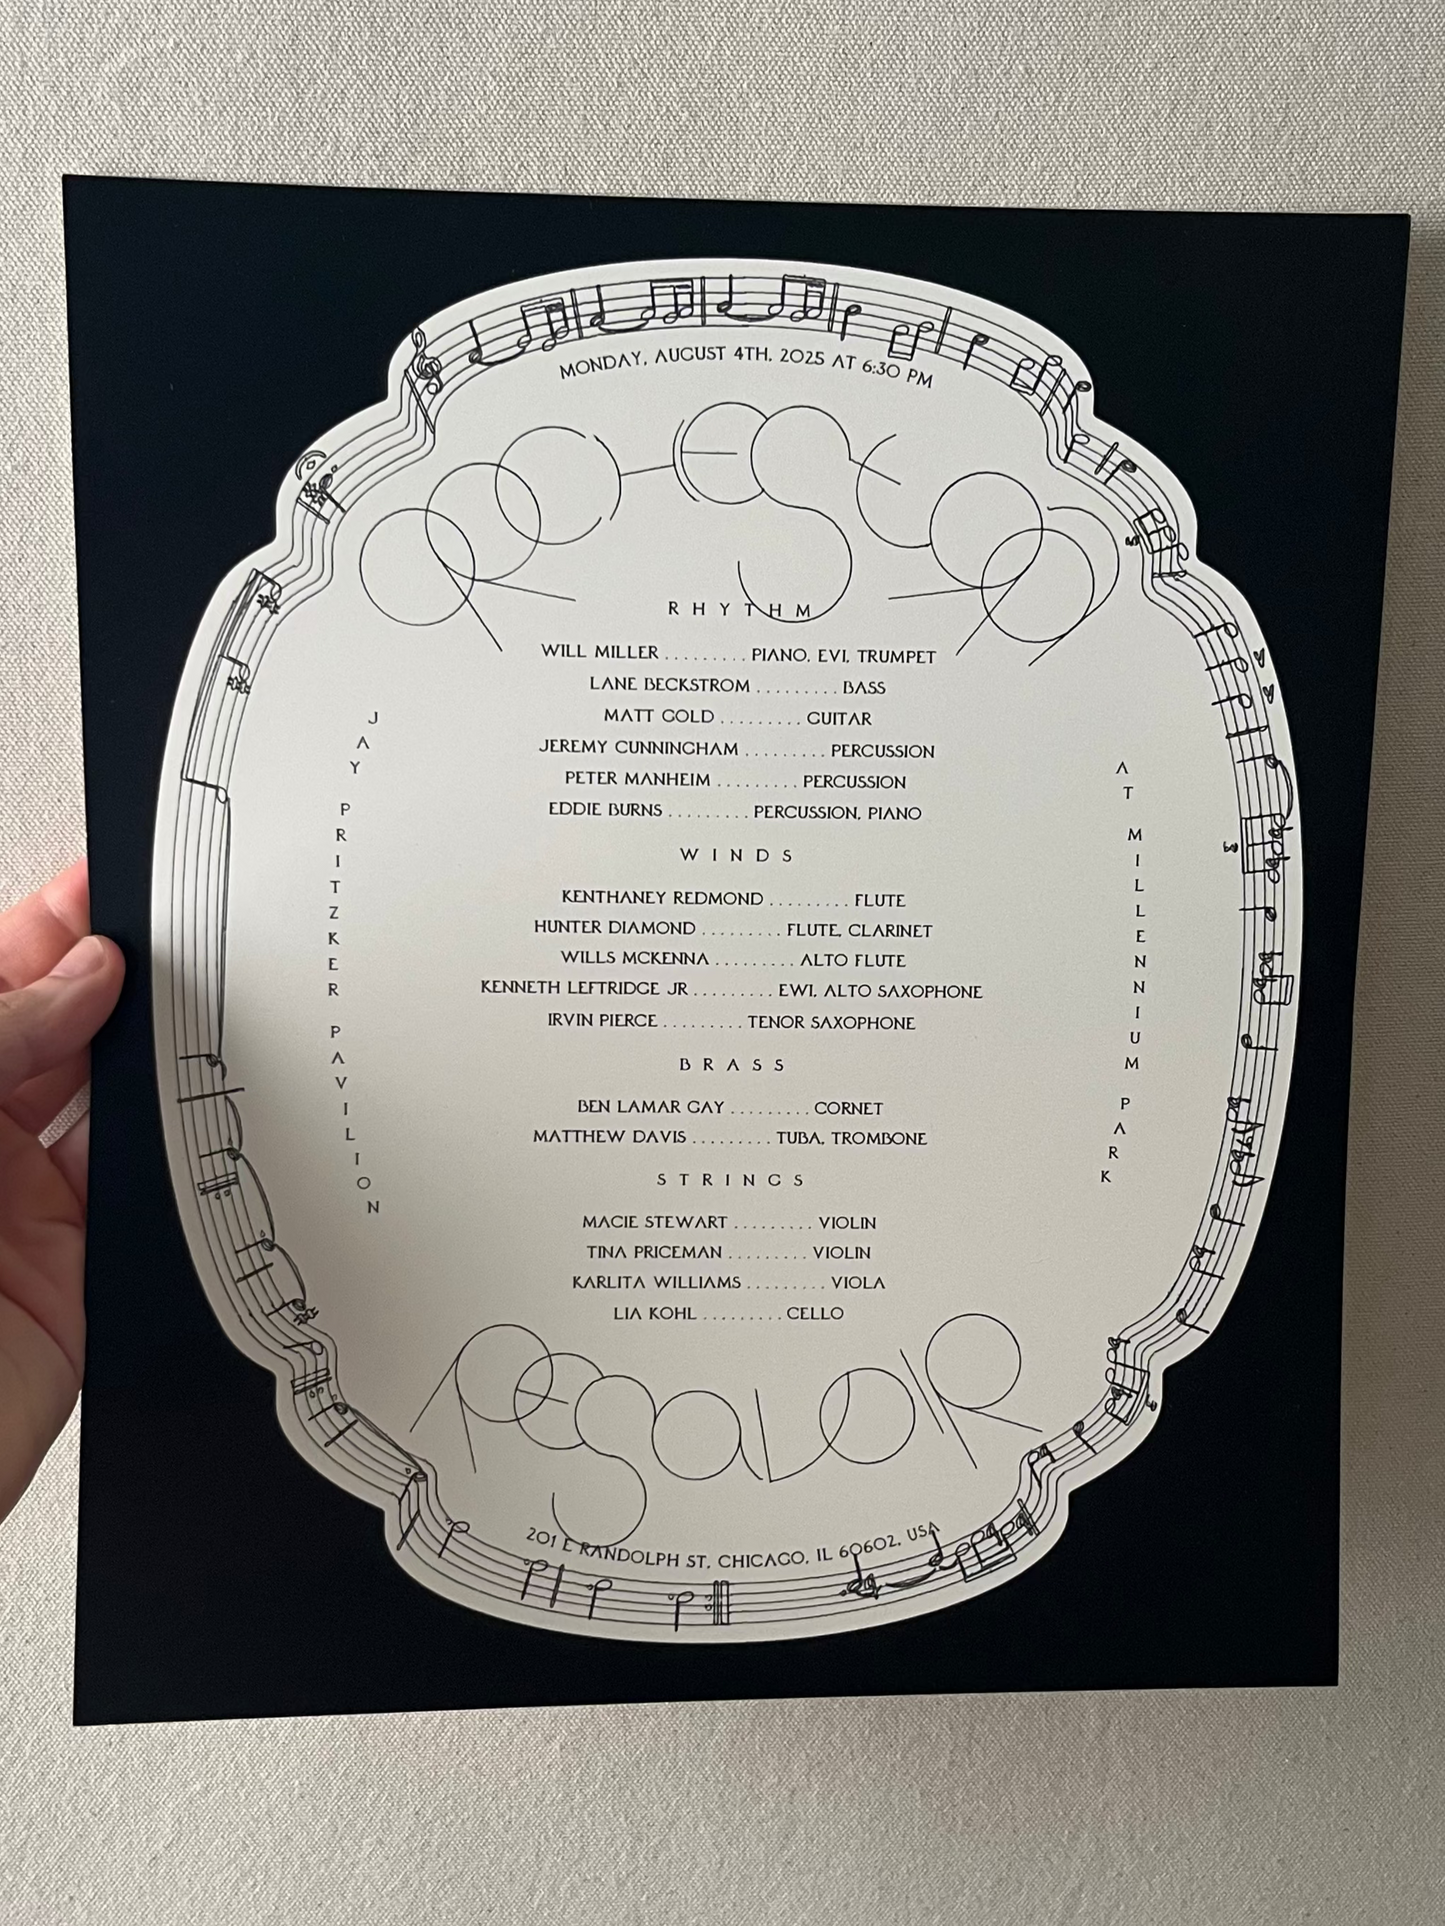 MONDAY, AUGUST 4TH, 2025 AT 6:30 PM
ORCHESTRA
RHYTHM
WILL MILLER ......... PIANO, EVI, TRUMPET
LANE BECKSTROM ......... BASS
MATT GOLD ......... GUITAR
JEREMY CUNNINGHAM ......... PERCUSSION
PETER MANHEIM ......... PERCUSSION
EDDIE BURNS ......... PERCUSSION, PIANO
WINDS
KENTHANEY REDMOND ......... FLUTE
HUNTER DIAMOND ......... FLUTE, CLARINET
WILLS MCKENNA ......... ALTO FLUTE
KENNETH LEFTRIDGE JR ......... EWI, ALTO SAXOPHONE
IRVIN PIERCE ......... TENOR SAXOPHONE
BRASS
BEN LAMAR GAY ......... CORNET
MATTHEW DAVIS ......... TUBA, TROMBONE
STRINGS
MACIE STEWART ......... VIOLIN
TINA PRICEMAN ......... VIOLIN
KARLITA WILLIAMS ......... VIOLA
LIA KOHL ......... CELLO
JAY PRITZKER PAVILION
AT MILLENNIUM PARK
RESAVOIR
201 E RANDOLPH ST, CHICAGO, IL 60602, USA